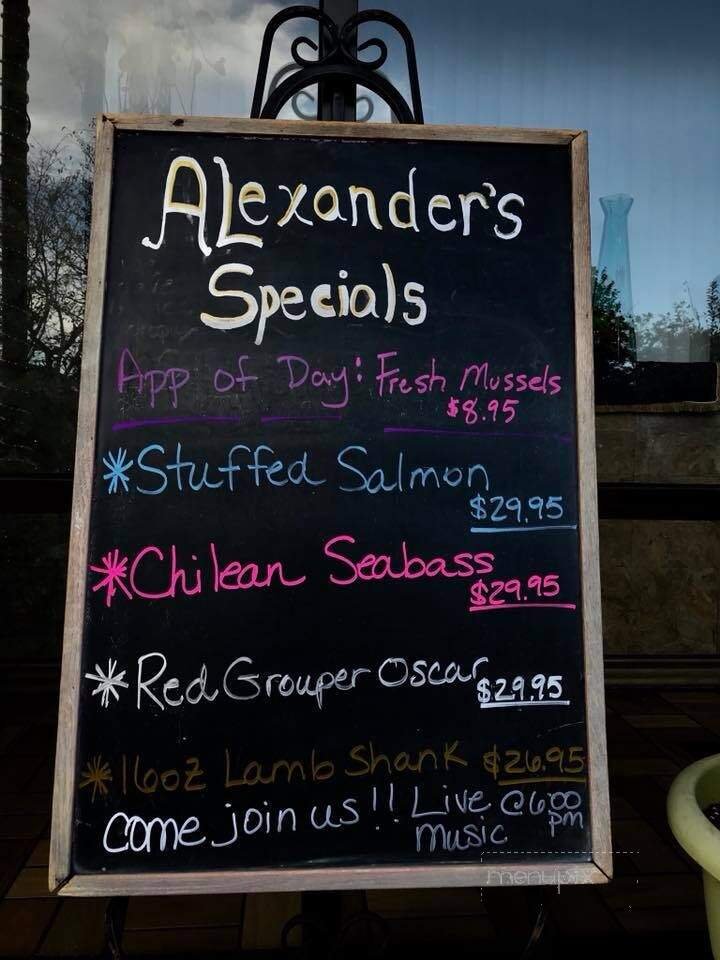 ALexander's
Specials
App of Day: Fresh Mussels
$8.95
*Stuffed Salmon
$29.95
*Chilean Seabass
$29.95
*Red Grouper Oscar $29.95
*16oz Lamb Shank $26.95
Come join us!! Live @6:00
music pm
menupix